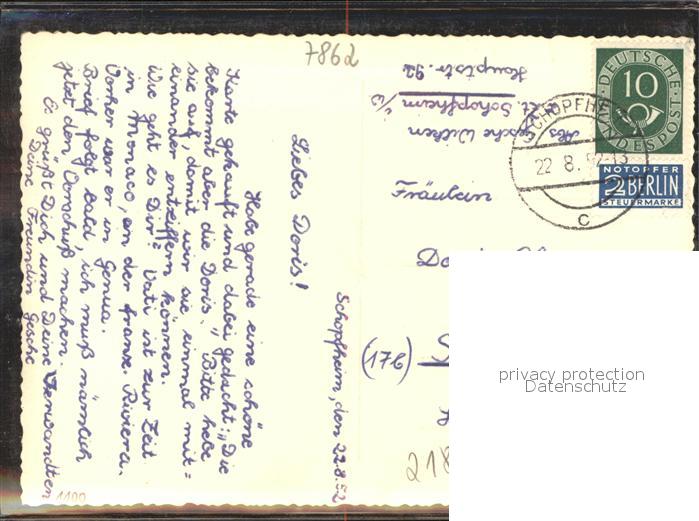 7862
Schopfheim, den 22.8.52
Liebes Doris!
Habe gerade eine schöne
Karte gekauft und dabei gedacht: „Die
bekommt aber die Doris." Bitte hebe
sie auf, damit wir sie einmal mit=
einander entziffern können.
Wie geht es Dir? Vati ist zur Zeit
in Monaco, an der franz. Riviera.
Vorher war er in Genua.
Brief folgt bald, ich muß nämlich
jetzt den „Vorschuß" machen.
Es grüßt Dich und Deine Verwandten
Deine Freundin Gesche
1100
Abs.
Gesche Wilken
Schopfheim i/W
Hauptstr. 92
Fräulein
(17b)
218
DEUTSCHE BUNDESPOST
10
SCHOPFHEIM
22.8.52-13
c
NOTOPFER
2 BERLIN
STEUERMARKE
privacy protection
Datenschutz